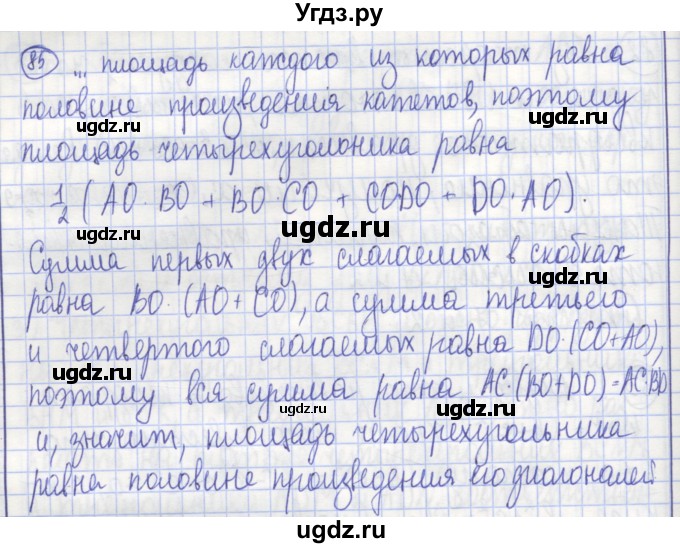 Угдз.ру
85 ... площадь каждого из которых равна
половине произведения катетов, поэтому
площадь четырехугольника равна
1/2 (AO·BO + BO·CO + CODO + DO·AO).
Сумма первых двух слагаемых в скобках
равна BO·(AO+CO), а сумма третьего
и четвертого слагаемых равна DO·(CO+AO),
поэтому вся сумма равна AC·(BO+DO)=AC·BD
и, значит, площадь четырехугольника
равна половине произведения его диагоналей.
ugdz.ru
ugdz.ru
ugdz.ru
ugdz.ru
ugdz.ru
ugdz.ru
ugdz.ru
ugdz.ru
ugdz.ru
ugdz.ru
ugdz.ru
ugdz.ru